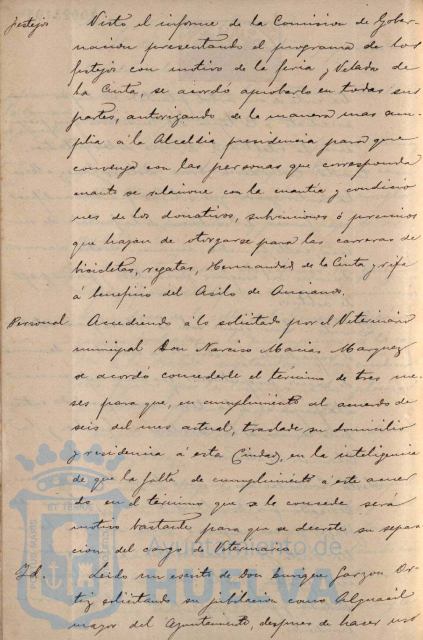 Festejos Visto el informe de la Comision de Gober-
nacion presentando el programa de los
festejos con motivo de la feria y Velada de
la Cinta, se acordó aprobarlo en todas sus
partes, autorizando de la manera mas am-
plia á la Alcaldia presidencia para que
convenga con las personas que corresponda
cuanto se relacione con la cuantia y condicio
nes de los donativos, subvenciones ó premios
que hayan de otorgarse para las carreras de
bicicletas, regatas, Hermandad de la Cinta y rifa
á beneficio del Asilo de Ancianos.
Personal Accediendo á lo solicitado por el Veterinario
municipal Don Narciso Macias Marquez
se acordó concederle el término de tres me-
ses para que, en cumplimiento al acuerdo de
seis del mes actual, traslade su domicilio
y residencia á esta Ciudad, en la inteligencia
de que la falta de cumplimiento á este acuer
do en el término que se le concede será
motivo bastante para que se decrete su sepa-
racion del cargo de Veterinario.
Id. Leido un escrito de don Enrique Garzon Or-
tiz solicitando su jubilacion como Alguacil
mayor del Ayuntamiento, despues de hacer uso
Ayuntamiento de
HUELVA